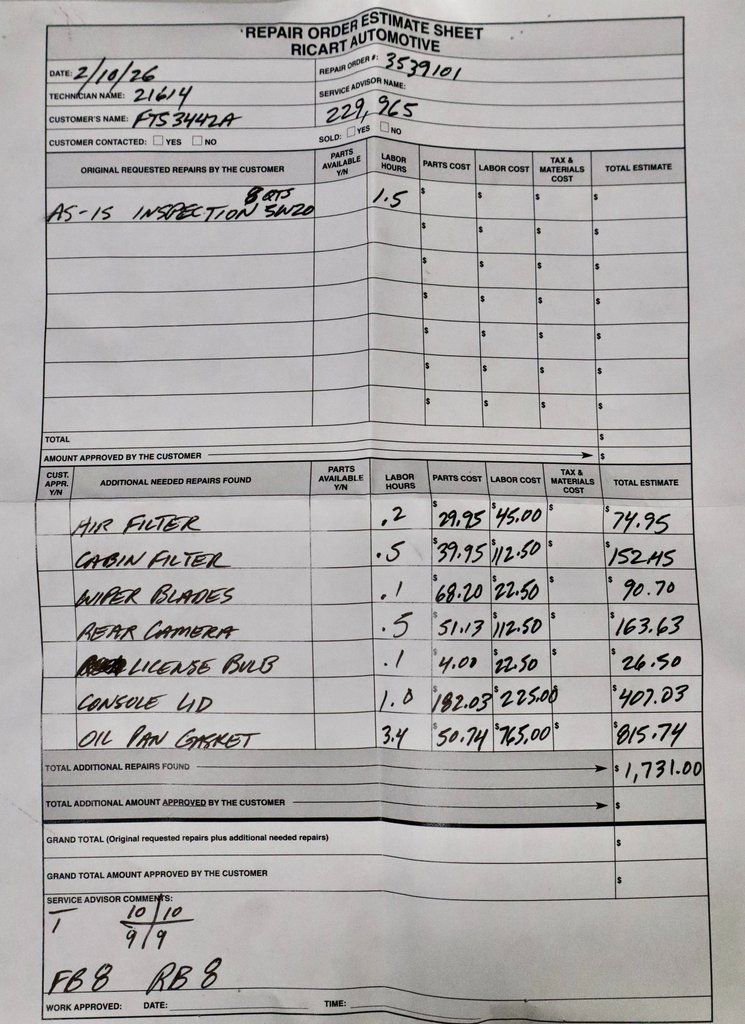 REPAIR ORDER ESTIMATE SHEET
RICART AUTOMOTIVE
DATE: 2/10/26
REPAIR ORDER #: 3539101
TECHNICIAN NAME: 21614
SERVICE ADVISOR NAME:
CUSTOMER'S NAME: FTS3442A
229,965
CUSTOMER CONTACTED: YES NO
SOLD: YES NO
ORIGINAL REQUESTED REPAIRS BY THE CUSTOMER PARTS AVAILABLE Y/N LABOR HOURS PARTS COST LABOR COST TAX & MATERIALS COST TOTAL ESTIMATE
8 QTS
AS-IS INSPECTION 5W20 1.5 $ $ $ $
$ $ $ $
$ $ $ $
$ $ $ $
$ $ $ $
$ $ $ $
$ $ $ $
TOTAL $
AMOUNT APPROVED BY THE CUSTOMER $
CUST. APPR. Y/N ADDITIONAL NEEDED REPAIRS FOUND PARTS AVAILABLE Y/N LABOR HOURS PARTS COST LABOR COST TAX & MATERIALS COST TOTAL ESTIMATE
AIR FILTER .2 $29.95 $45.00 $ $74.95
CABIN FILTER .5 $39.95 $112.50 $ $152.45
WIPER BLADES .1 $68.20 $22.50 $ $90.70
REAR CAMERA .5 $51.13 $112.50 $ $163.63
LICENSE BULB .1 $4.00 $22.50 $ $26.50
CONSOLE LID 1.0 $182.03 $225.00 $ $407.03
OIL PAN GASKET 3.4 $50.74 $765.00 $ $815.74
TOTAL ADDITIONAL REPAIRS FOUND $1,731.00
TOTAL ADDITIONAL AMOUNT APPROVED BY THE CUSTOMER $
GRAND TOTAL (Original requested repairs plus additional needed repairs) $
GRAND TOTAL AMOUNT APPROVED BY THE CUSTOMER $
SERVICE ADVISOR COMMENTS:
T 10/10
9/9
FB 8 RB 8
WORK APPROVED: DATE: TIME: